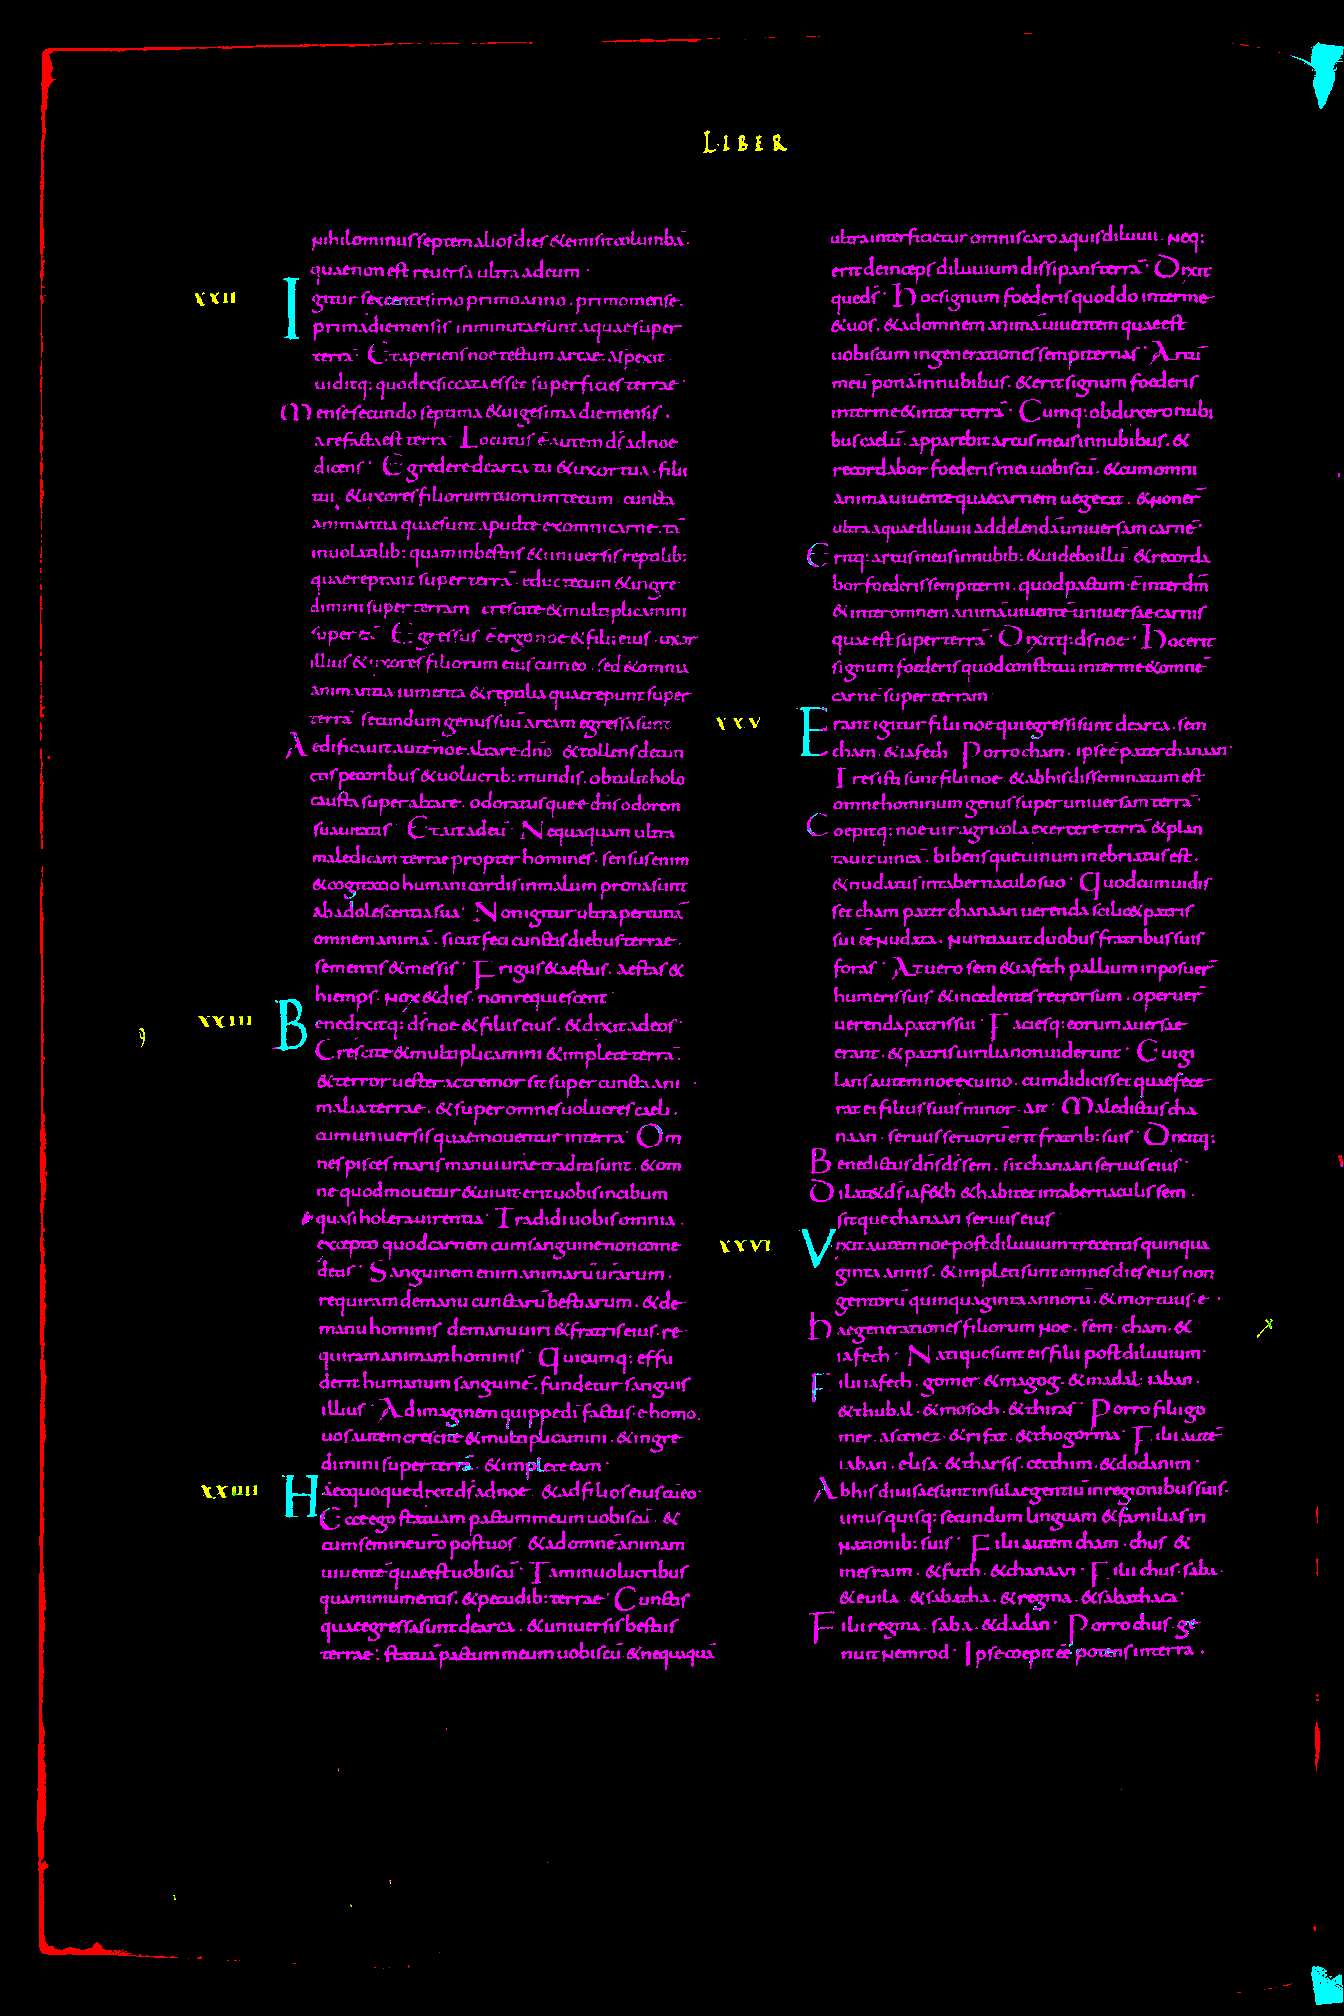 LIBER
nihilominus septem alios dies & emisit columbā.
quae non est reuersa ultra ad eum ·
XXII
Igitur sexcentesimo primo anno. primo mense.
prima die mensis inminutae sunt aquae super
terrā · Et aperiens noe tectum arcae. aspexit
uiditq: quod exsiccata esset superficies terrae ·
Mense secundo septima & uigesima die mensis.
arefacta est terra · Locutus ē autem ds̄ ad noe
dicens · Egredere de arca tu & uxor tua. filii
tui. & uxores filiorum tuorum tecum. cuncta
animantia quae sunt apud te ex omni carne. tā
in uolatilib: quam in bestiis & in uniuersis reptilib:
quae reptant super terrā. educ tecum & ingre
dimini super terram crescite & multiplicamini
super eā · Egressus ē ergo noe & filii eius. uxor
illius & uxores filiorum eius cum eo. sed & omnia
animantia iumenta & reptilia quae repunt super
terrā secundum genus suū arcam egressa sunt
Aedificauit autē noe altare dn̄o & tollens de cun
ctis pecoribus & uolucrib: mundis. obtulit holo
causta super altare. odoratusque ē dn̄s odorem
suauitatis · Et ait ad eū · Nequaquam ultra
maledicam terrae propter homines. sensus enim
& cogitatio humani cordis in malum prona sunt
ab adolescentia sua · Non igitur ultra percutiā
omnem animā. sicut feci cunctis diebus terrae.
sementis & messis · Frigus & aestus. aestas &
hiemps. nox & dies. non requiescent ·
XXIII
Benedixitq: ds̄ noe & filiis eius. & dixit ad eos ·
Crescite & multiplicamini & implete terrā.
& terror uester ac tremor sit super cuncta ani
malia terrae. & super omnes uolucres caeli.
cum uniuersis quae mouentur in terra · Om
nes pisces maris manui urāe traditi sunt. & om
ne quod mouetur & uiuit erit uobis in cibum
quasi holera uirentia · Tradidi uobis omnia.
excepto quod carnem cum sanguine non come
detis · Sanguinem enim animarū urārum.
requiram de manu cunctarū bestiarum. & de
manu hominis de manu uiri & fratris eius. re
quiram animam hominis · Quicumq: effu
derit humanum sanguinē. fundetur sanguis
illius · Ad imaginem quippe di factus ē homo.
uos autem crescite & multiplicamini. & ingre
dimini super terrā. & implete eam ·
XXIIII
Haec quoque dixit ds̄ ad noe. & ad filios eius cū eo ·
Ecce ego statuam pactum meum uobiscū. &
cum semine uro post uos & ad omnē animam
uiuentē quae est uobiscū · Tam in uolucribus
quam in iumentis. & pecudib: terrae · Cunctis
quae egressa sunt de arca. & uniuersis bestiis
terrae: statuā pactum meum uobiscū & nequaquā
ultra interficietur omnis caro aquis diluuii. neq:
erit deinceps diluuium dissipans terrā · Dixit
que ds̄ · Hoc signum foederis quod do inter me
& uos. & ad omnem animā uiuentem quae est
uobiscum in generationes sempiternas · Arcū
meū ponā in nubibus. & erit signum foederis
inter me & inter terrā · Cumq: obduxero nubi
bus caelū. apparebit arcus meus in nubibus. &
recordabor foederis mei uobiscū. & cum omni
anima uiuente quae carnem uegetat. & non er̄
ultra aquae diluuii ad delendā uniuersam carnē ·
Eritq: arcus meus in nubib: & uidebo illū & recorda
bor foederis sempiterni. quod pactum ē inter dm̄
& inter omnem animā uiuentē uniuersae carnis
quae est super terrā · Dixitq: ds̄ noe · Hoc erit
signum foederis quod constitui inter me & omnē
carnē super terram
XXV
Erant igitur filii noe qui egressi sunt de arca. sem
cham. & iafeth Porro cham. ipse ē pater chanaan ·
Tres isti sunt filii noe. & ab his disseminatum est
omne hominum genus super uniuersam terrā ·
Coepitq: noe uir agricola exercere terrā & plan
tauit uineā. bibensque uinum inebriatus est.
& nudatus in tabernaculo suo · Quod cum uidis
set cham pater chanaan uerenda scilic& patris
sui eē nudata. nuntiauit duobus fratribus suis
foras · At uero sem & iafeth pallium inposuer̄
humeris suis & incedentes retrorsum. operuer̄
uerenda patris sui · Faciesq: eorum auersae
erant. & patris uirilia non uiderunt · Euigi
lans autem noe ex uino. cum didicisset quae fece
rat ei filius suus minor. ait · Maledictus cha
naan. seruus seruorū erit fratrib: suis · Dixitq:
Benedictus dn̄s ds̄ sem. sit chanaan seruus eius ·
Dilat& ds̄ iaf&h & habitet in tabernaculis sem.
sitque chanaan seruus eius
XXVI
Vixit autem noe post diluuium trecentis quinqua
ginta annis. & impleti sunt omnes dies eius non
gentorū quinquaginta annorū. & mortuus. ē ·
Hae generationes filiorum noe. sem. cham. &
iafeth · Natique sunt eis filii post diluuium ·
Filii iafeth. gomer. & magog. & madai. iaban.
& thubal. & mosoch. & thiras · Porro filii go
mer. ascenez. & rifat. & thogorma · Filii autē
iaban. elisa. & tharsis. cetthim. & dodanim ·
Ab his diuisae sunt insulae gentiū in regionibus suis.
unusquisq: secundum linguam & familias in
nationib: suis · Filii autem cham. chus &
mesraim. & futh. & chanaan · Filii chus. saba.
& euila. & sabatha. & regma. & sabathaca ·
Filii regma. saba. & dadan · Porro chus ge
nuit nemrod · Ipse coepit eē potens in terra.